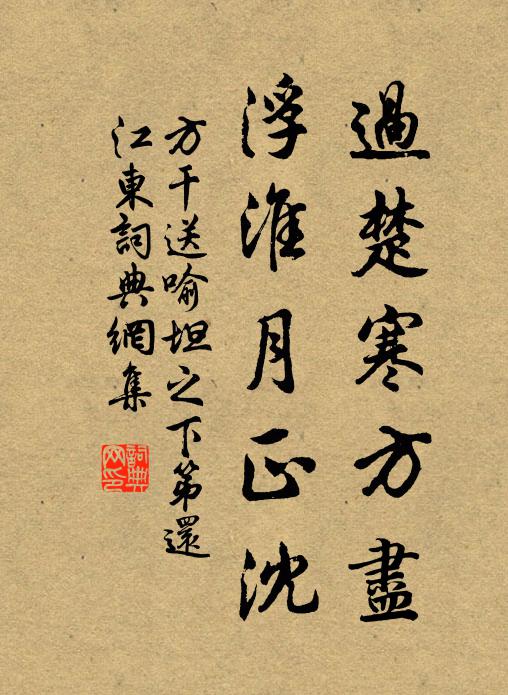 過楚寒方盡
浮淮月正沈
方干送喻坦之下第還
江東詞典網集
詞典
网印